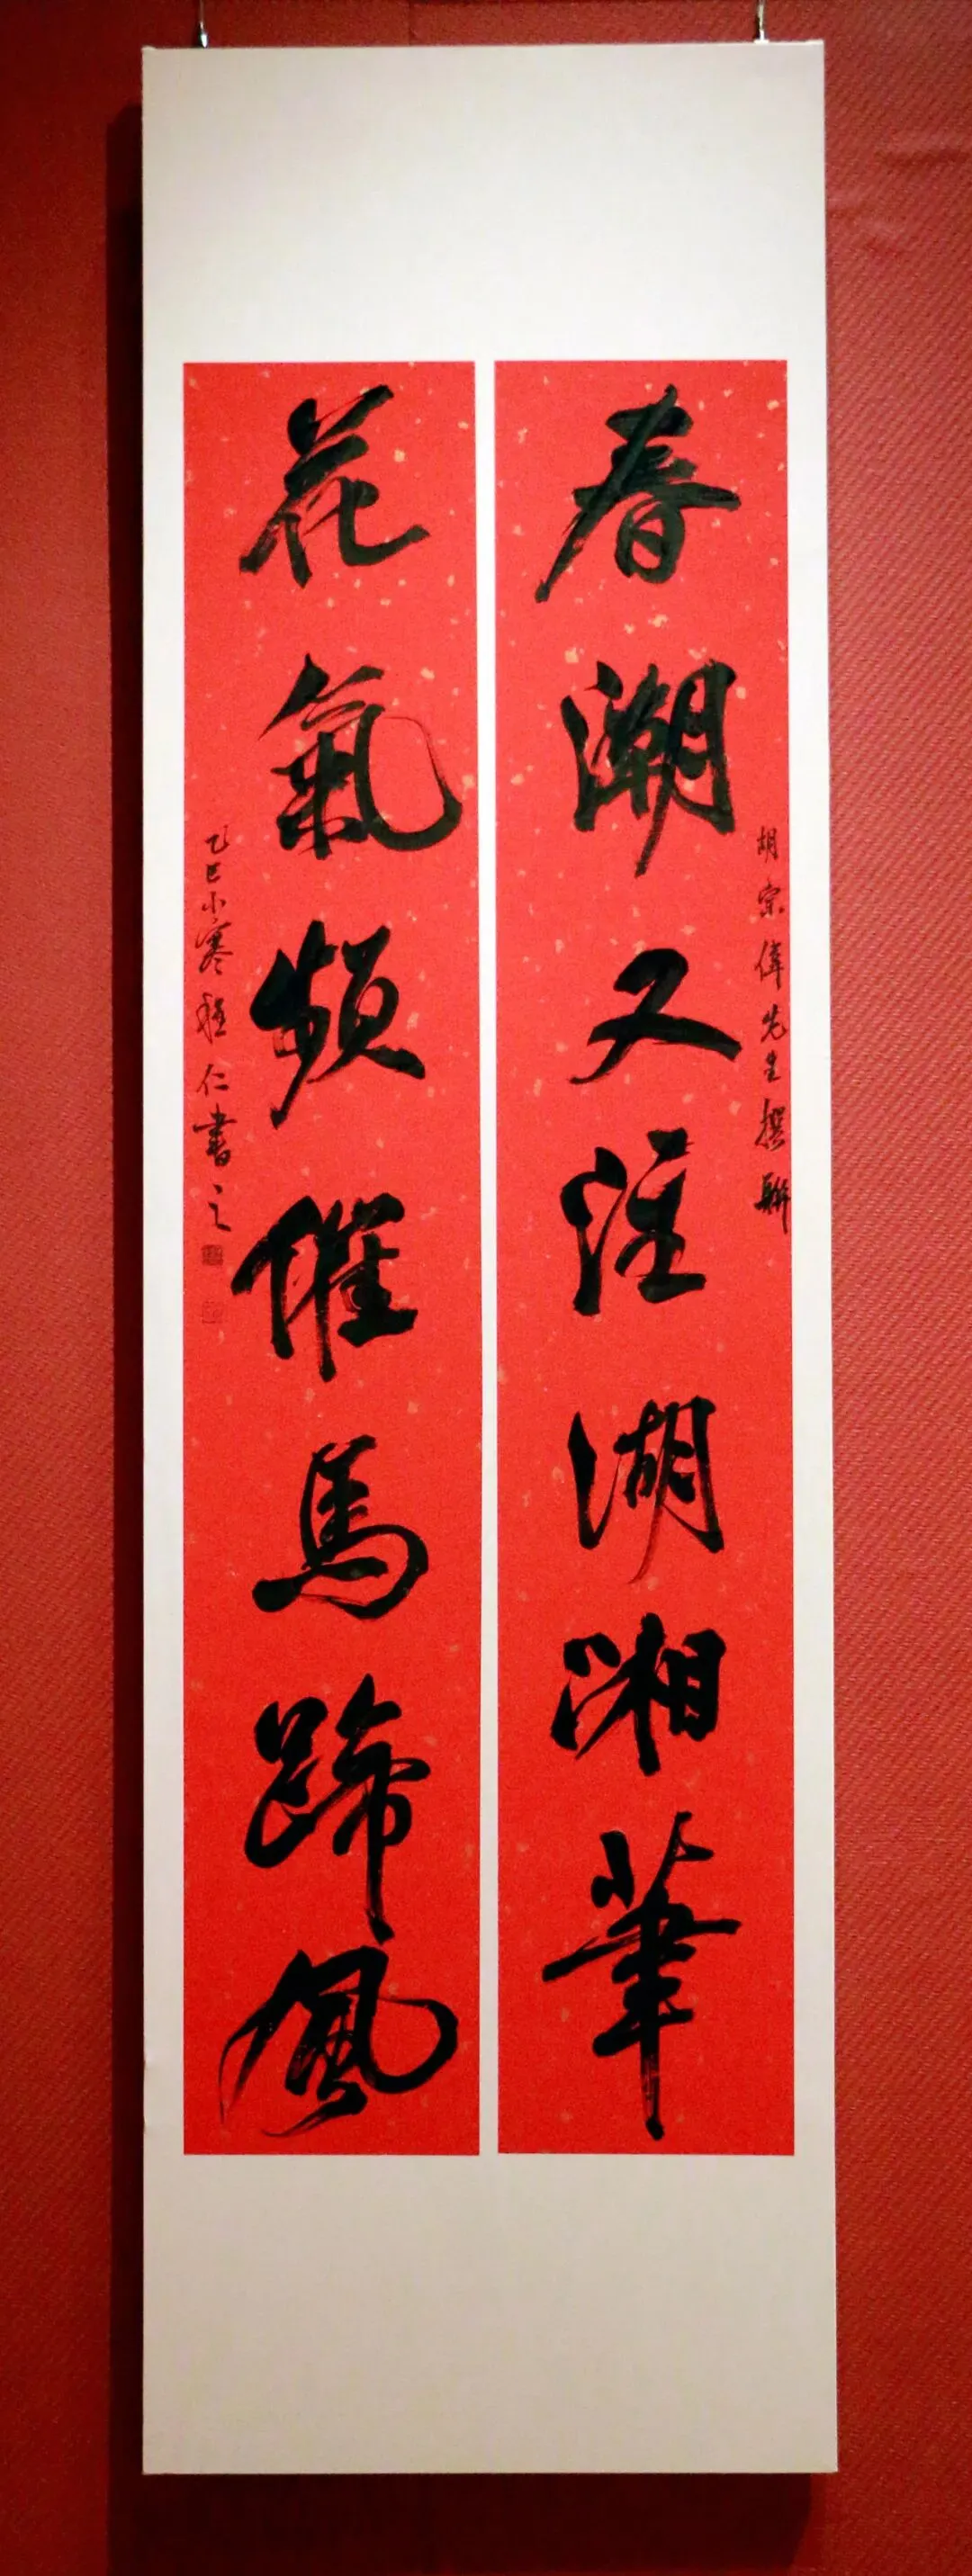 春潮又注湖湘筆
胡宗偉先生撰聯
花氣頻催馬蹄風
乙巳小寒程仁書之